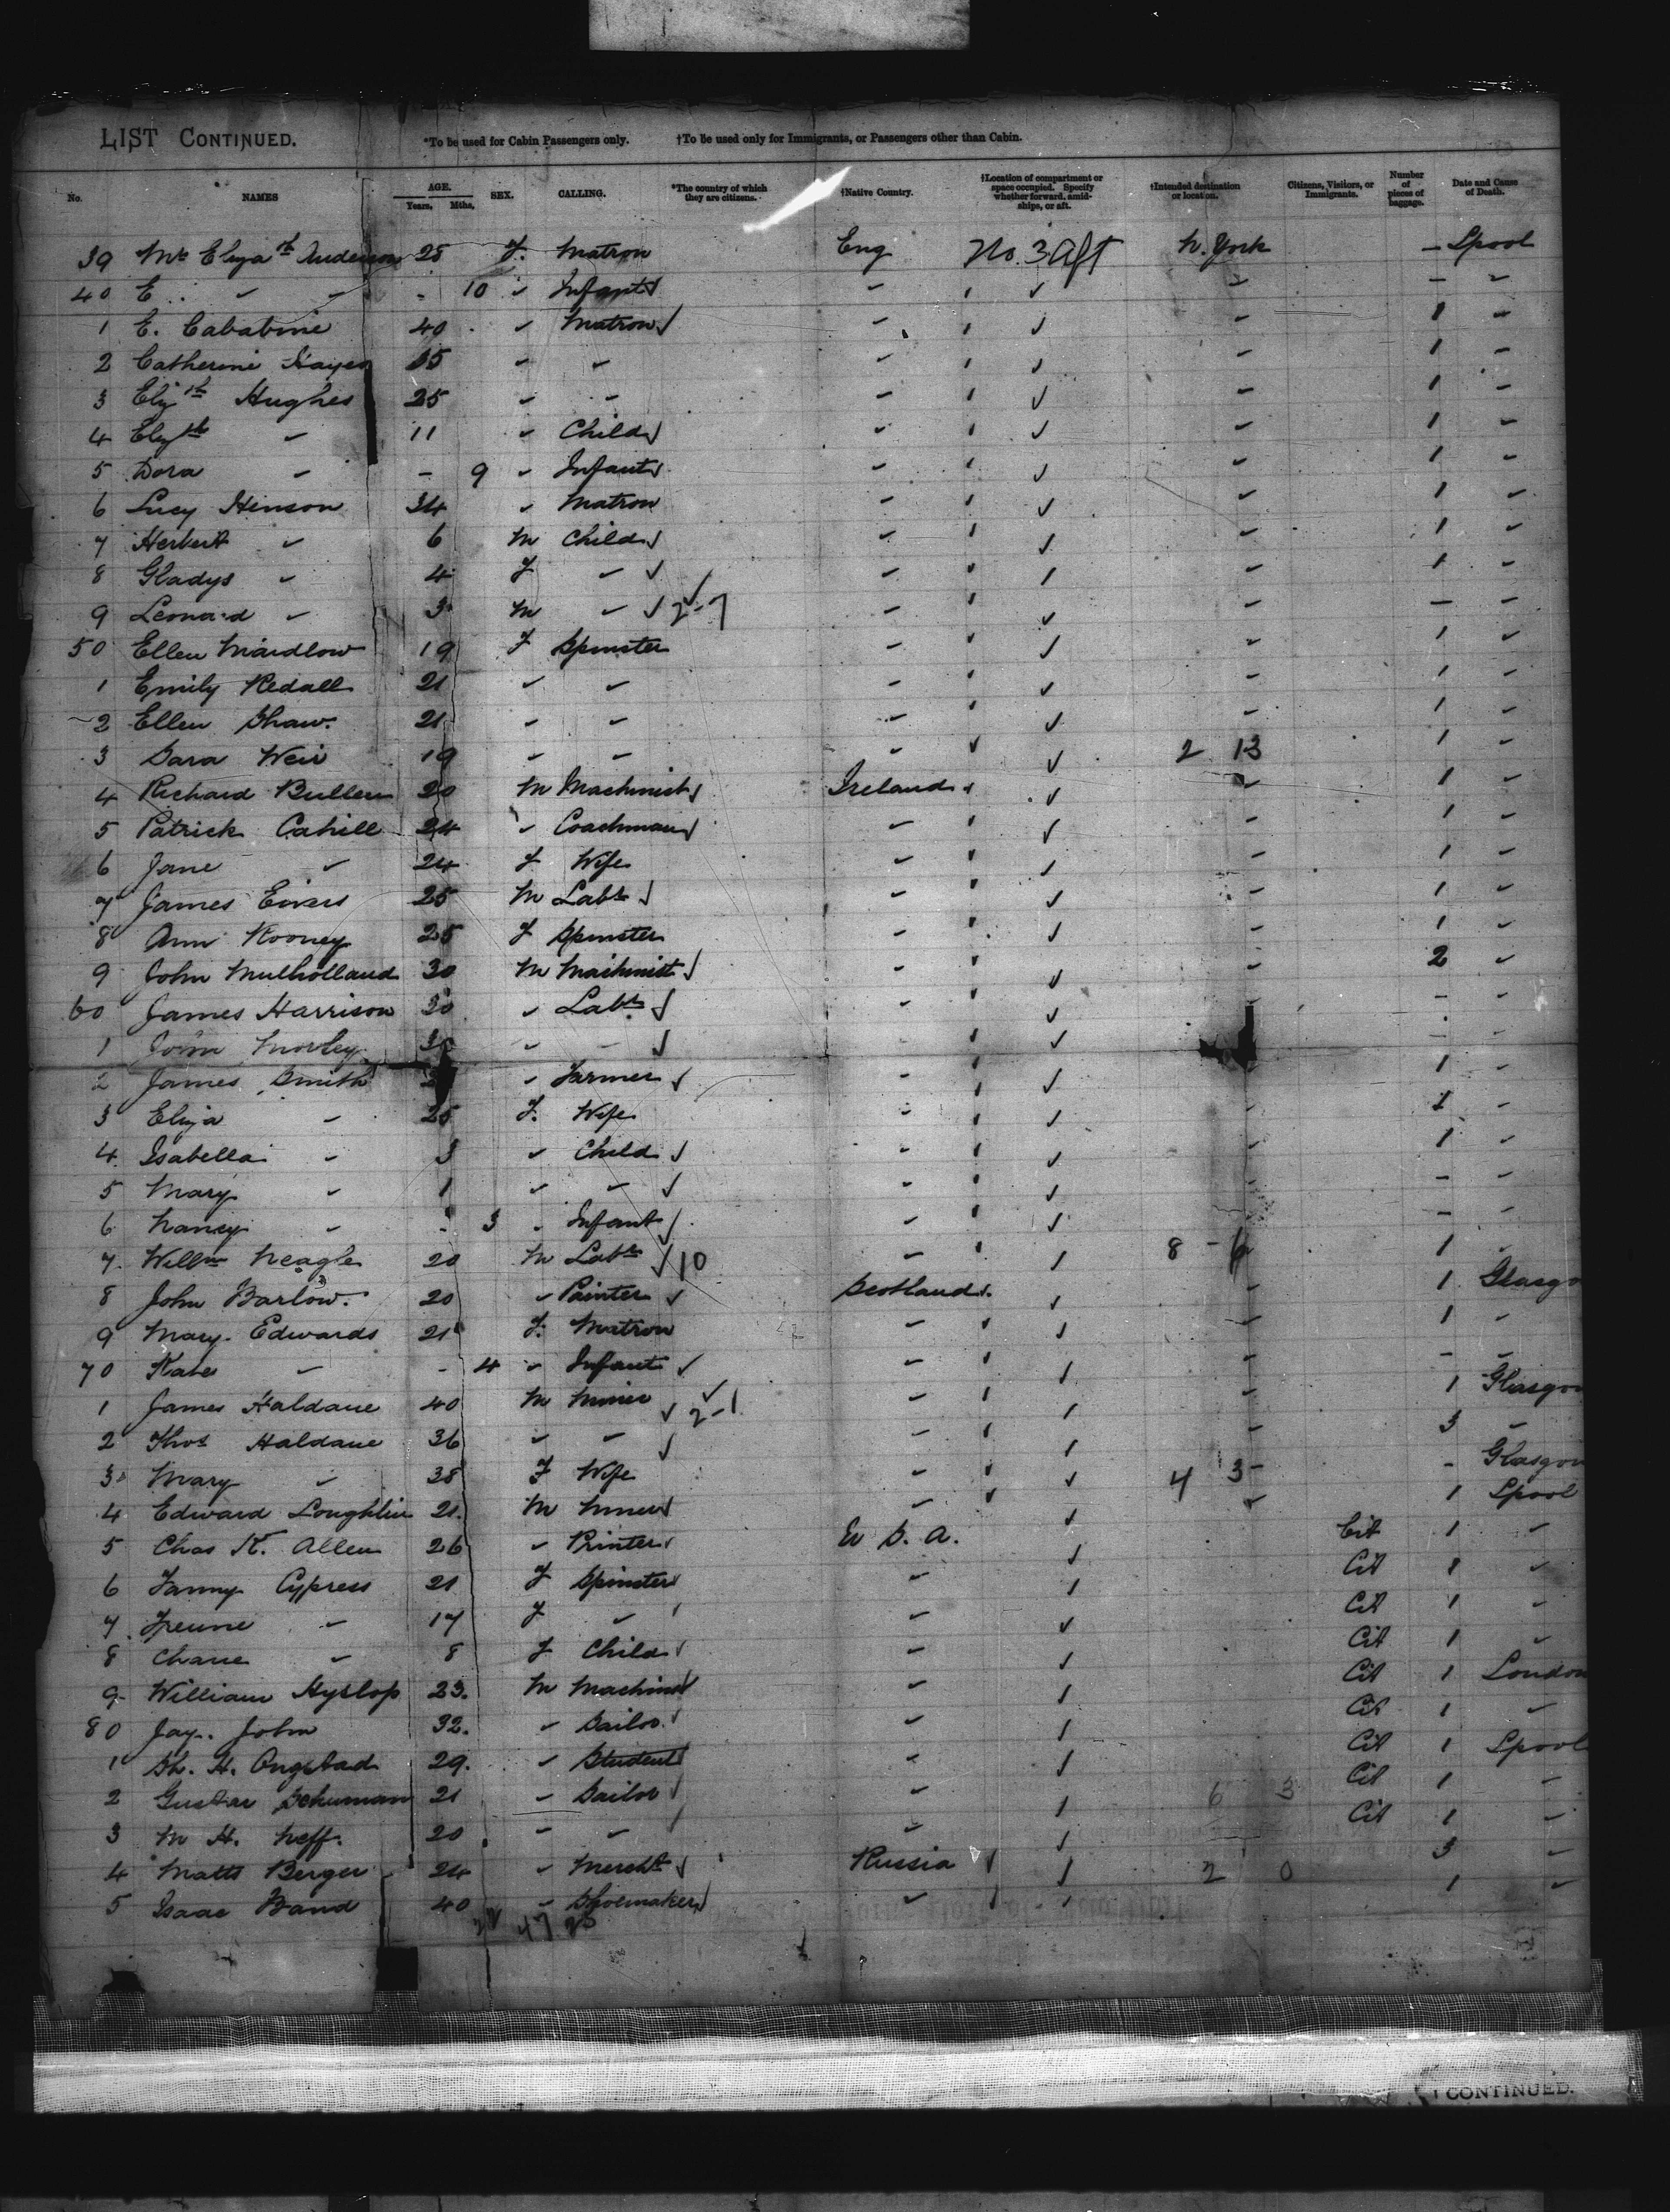 LIST CONTINUED. *To be used for Cabin Passengers only. †To be used only for Immigrants, or Passengers other than Cabin.
No. NAMES AGE. Years, Mths, SEX. CALLING. *The country of which they are citizens. †Native Country. †Location of compartment or space occupied. Specify whether forward, amidships, or aft. †Intended destination or location. Citizens, Visitors, or Immigrants. Number of pieces of baggage. Date and Cause of Death.
39 Mrs Elizath Anderson 28 F. Matron Eng No. 3 Aft N. York – Lpool
40 E. " " - 10 " Infant ✓ " ' ✓ " – "
1 E. 40 " Matron ✓ " ' ✓ " 1 "
2 Catherine Hayes 35 " " " ' ✓ " 1 "
3 Elizth Hughes 25 " " " ' ✓ " 1 "
4 Elizth " 11 " Child ✓ " ' ✓ " 1 "
5 Dora " – 9 " Infant ✓ " ' ✓ " 1 "
6 Lucy Henson 34 " Matron " ' ✓ " 1 "
7 Herbert " 6 M Child ✓ " ' ✓ " 1 "
8 Gladys " 4 F " ✓ " ' ✓ " 1 "
9 Leonard " 3 M " ✓ 2-7 " ' ✓ " – "
50 Ellen Maidlow 19 F Spinster " ' ✓ " 1 "
1 Emily Redall 21 " " " ' ✓ " 1 "
2 Ellen Shaw. 21 " " " ' ✓ " 1 "
3 Sara Weir 19 " " " ' ✓ 2 13 1 "
4 Richard Bullen 20 M Machinist ✓ Ireland ' ✓ " 1 "
5 Patrick Cahill 24 " Coachman ✓ " ' ✓ " 1 "
6 Jane " 24 F Wife " ' ✓ " 1 "
7 James Eivers 25 M Labr ✓ " ' ✓ " 1 "
8 Ann Rooney 25 F Spinster " ' ✓ " 1 "
9 John Mulholland 30 M Machinist ✓ " ' ✓ " 2 "
60 James Harrison 30 " Labr ✓ " ' ✓ " – "
1 John Morley " " ✓ ' ✓ – "
2 James Smith " Farmer ✓ " ' ✓ " 1 "
3 Eliza " 25 F. Wife " ' ✓ " 1 "
4 Isabella " 3 " Child ✓ " ' ✓ " 1 "
5 Mary " 1 " " ✓ " ' ✓ " – "
6 Nancy " - 3 " Infant ✓ " ' ✓ " – "
7 Willm Neagle 20 M Labr ✓ 10 " ' ✓ 8 - 6 1 "
8 John Barlow. 20 " Painter ✓ Scotland ✓ " 1 Glasgo
9 Mary Edwards 21 F. Matron " ' ✓ " 1 "
70 Kate " - 4 " Infant ✓ " ' ✓ " – "
1 James Haldane 40 M Miner ✓ 2-1 " ' ✓ " 1 Glasgow
2 Thos Haldane 36 " " ✓ " ' ✓ " 3 "
3 Mary " 38 F Wife " ' ✓ 4 3 – Glasgow
4 Edward Loughlin 21. M Miner ✓ " ' ✓ " 1 Lpool
5 Chas K. Allen 26 " Printer ✓ U S. A. ✓ Cit 1 "
6 Fanny Cypress 21 F Spinster ✓ " ✓ Cit 1 "
7 " 17 F " ' " ✓ Cit 1 "
8 " 8 F Child ✓ " ✓ Cit 1 "
9 William Hyslop 23. M Machinist " ✓ Cit 1 London
80 Jay. John 32. " Sailor ✓ " ✓ Cit 1 "
1 29. " Student ✓ " ✓ Cit 1 Lpool
2 Gustav Schuman 21 " Sailor ✓ " ✓ 6 3 Cit 1 "
3 M H. Neff. 20 " " ✓ " ✓ Cit 1 "
4 Matts Berger 24 " Mercht ✓ Russia ✓ ✓ 2 0 3 "
5 Isaac Band 40 " Shoemaker ✓ " ' ✓ 1 "
47
CONTINUED.